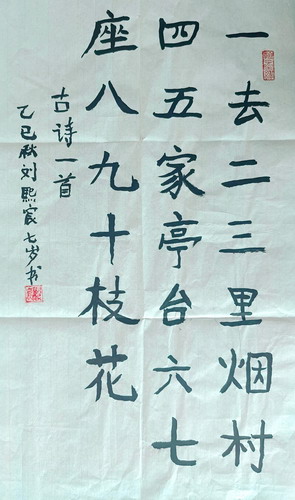 一去二三里烟村
四五家亭台六七
座八九十枝花
古诗一首
乙巳秋刘熙宸七岁书